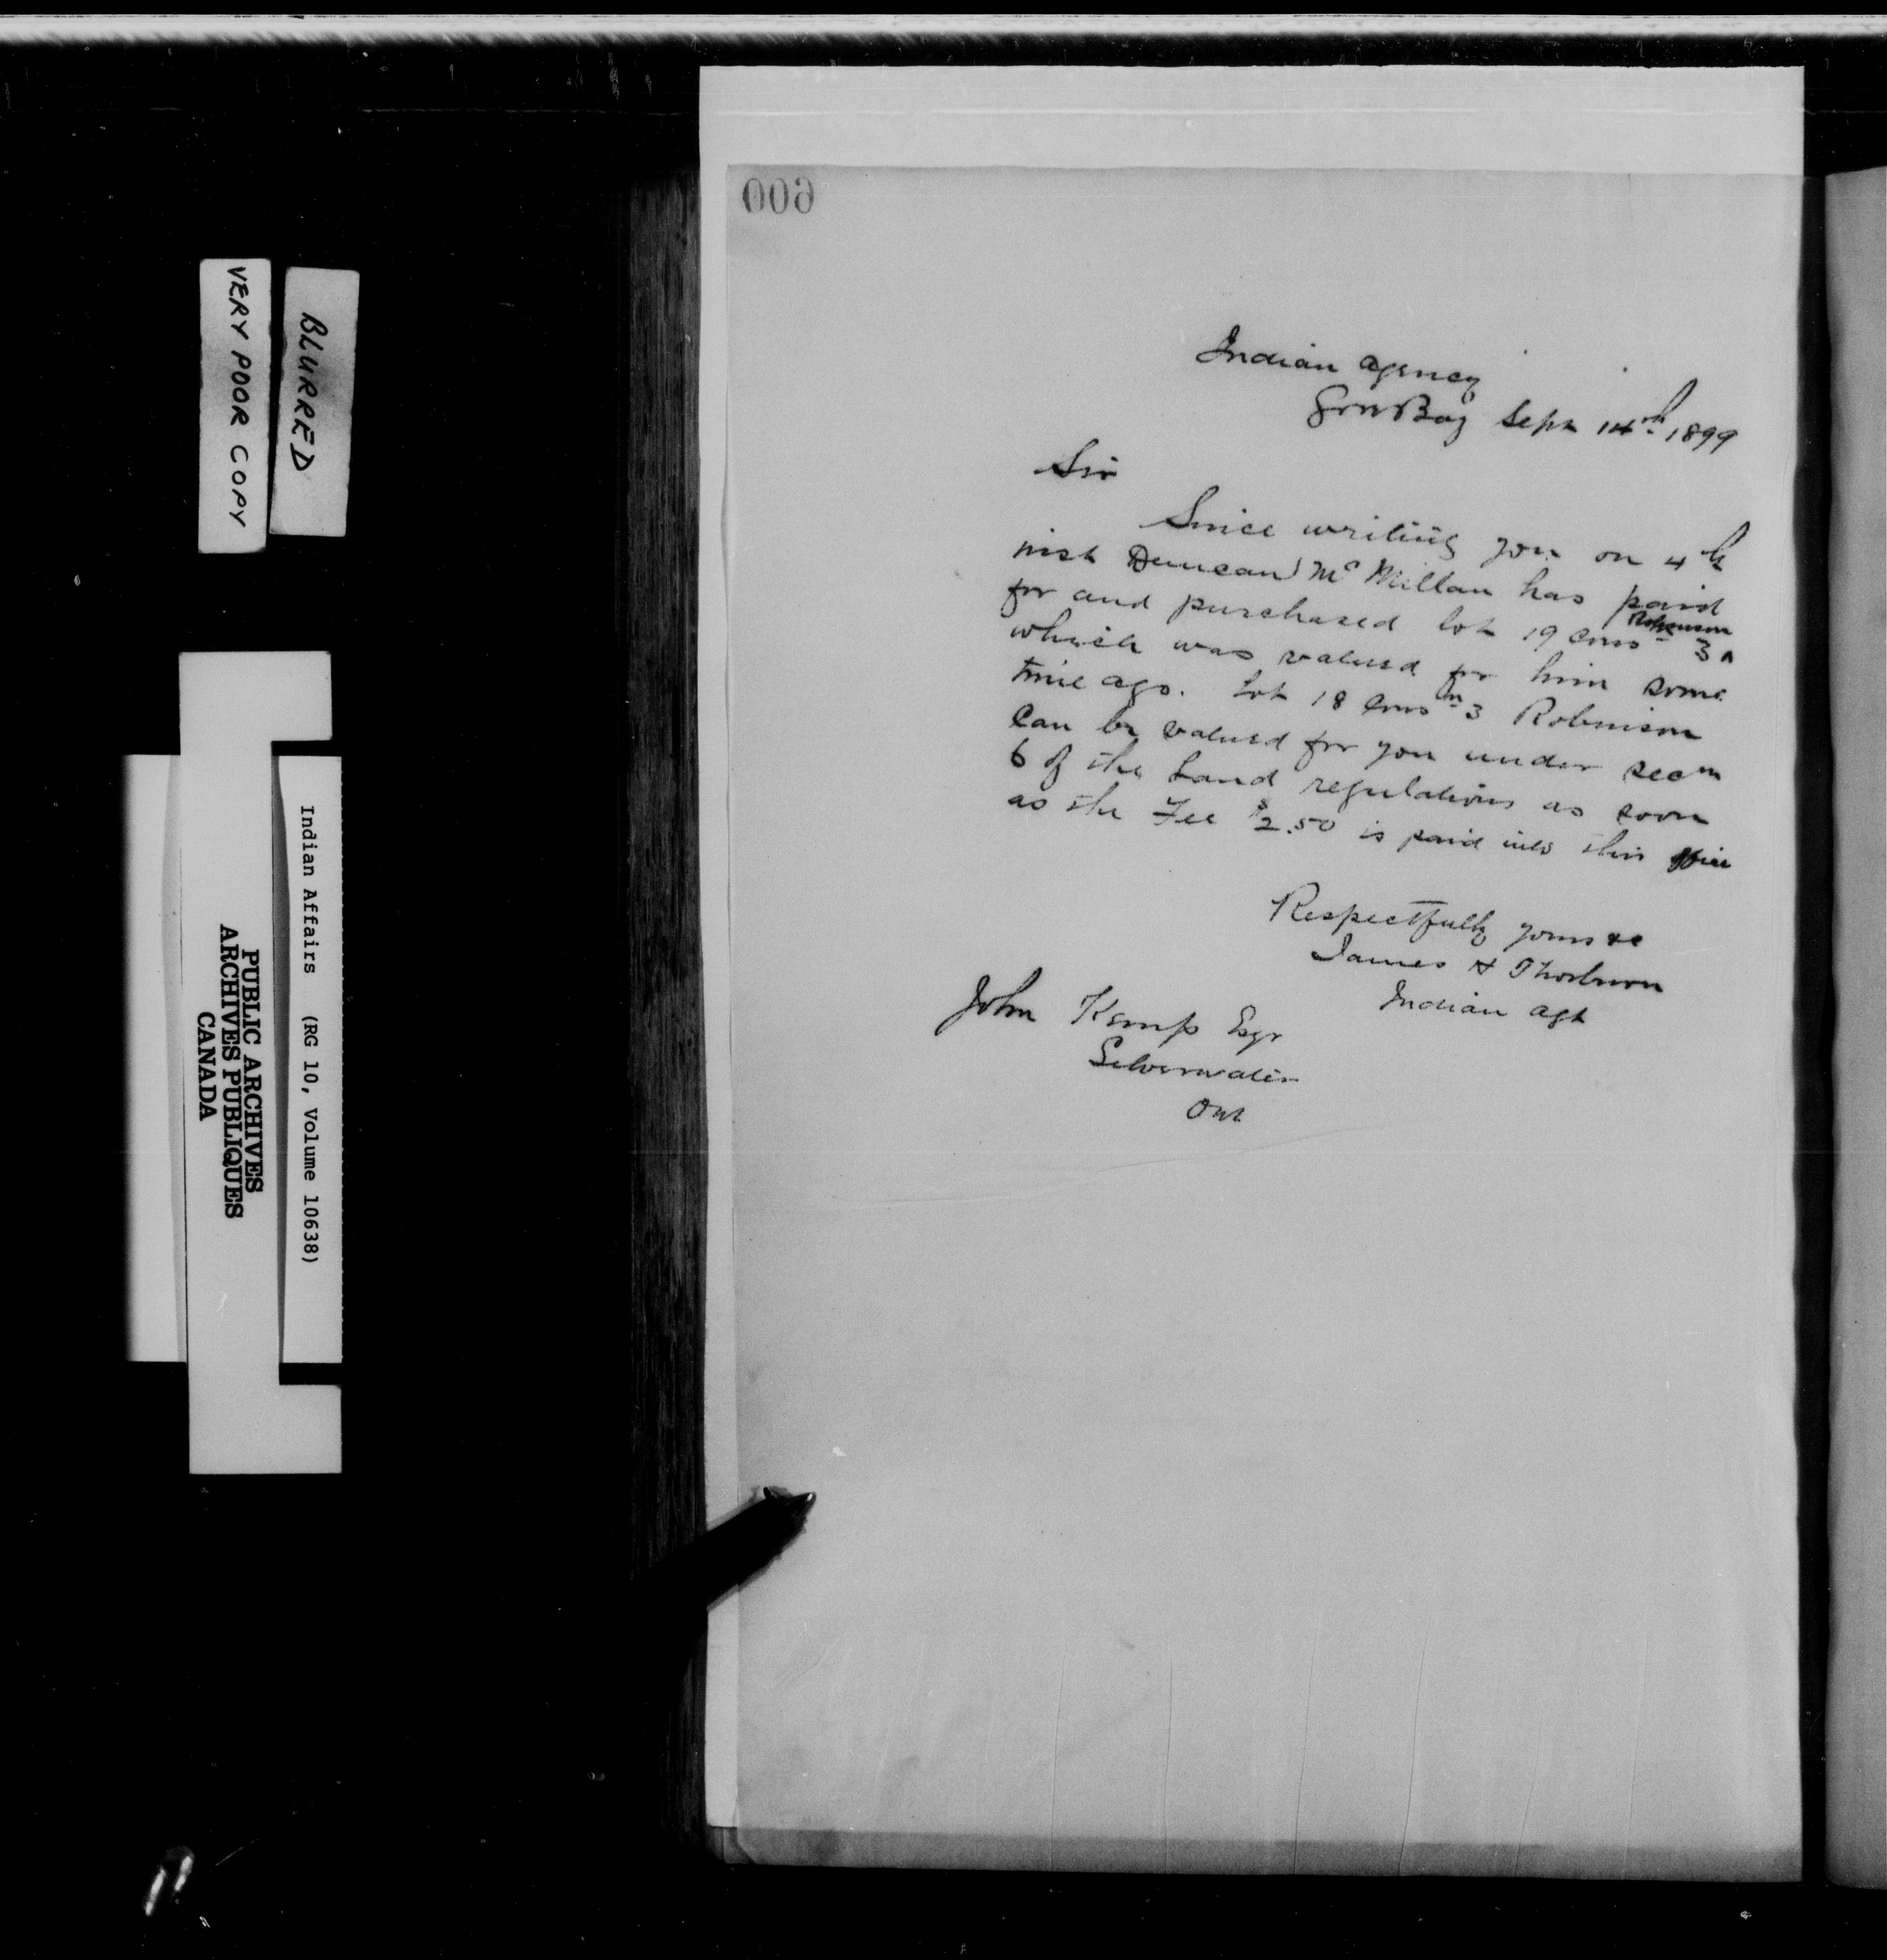 VERY POOR COPY
BLURRED
Indian Affairs (RG 10, Volume 10638)
PUBLIC ARCHIVES
ARCHIVES PUBLIQUES
CANADA
600
Indian Agency
Gore Bay Sept 14th 1899
Sir
Since writing you on 4th
inst Duncan McMillan has paid
for and purchased lot 19 Conn 3 ^ Robinson
which was valued for him some
time ago. Lot 18 Conn 3 Robinson
Can be valued for you under secn
6 of the Land regulations as soon
as the Fee $2.50 is paid into this office
Respectfully yours &c
James H Thorburn
Indian Agt
John Kemp Esqr
Silverwater
Ont